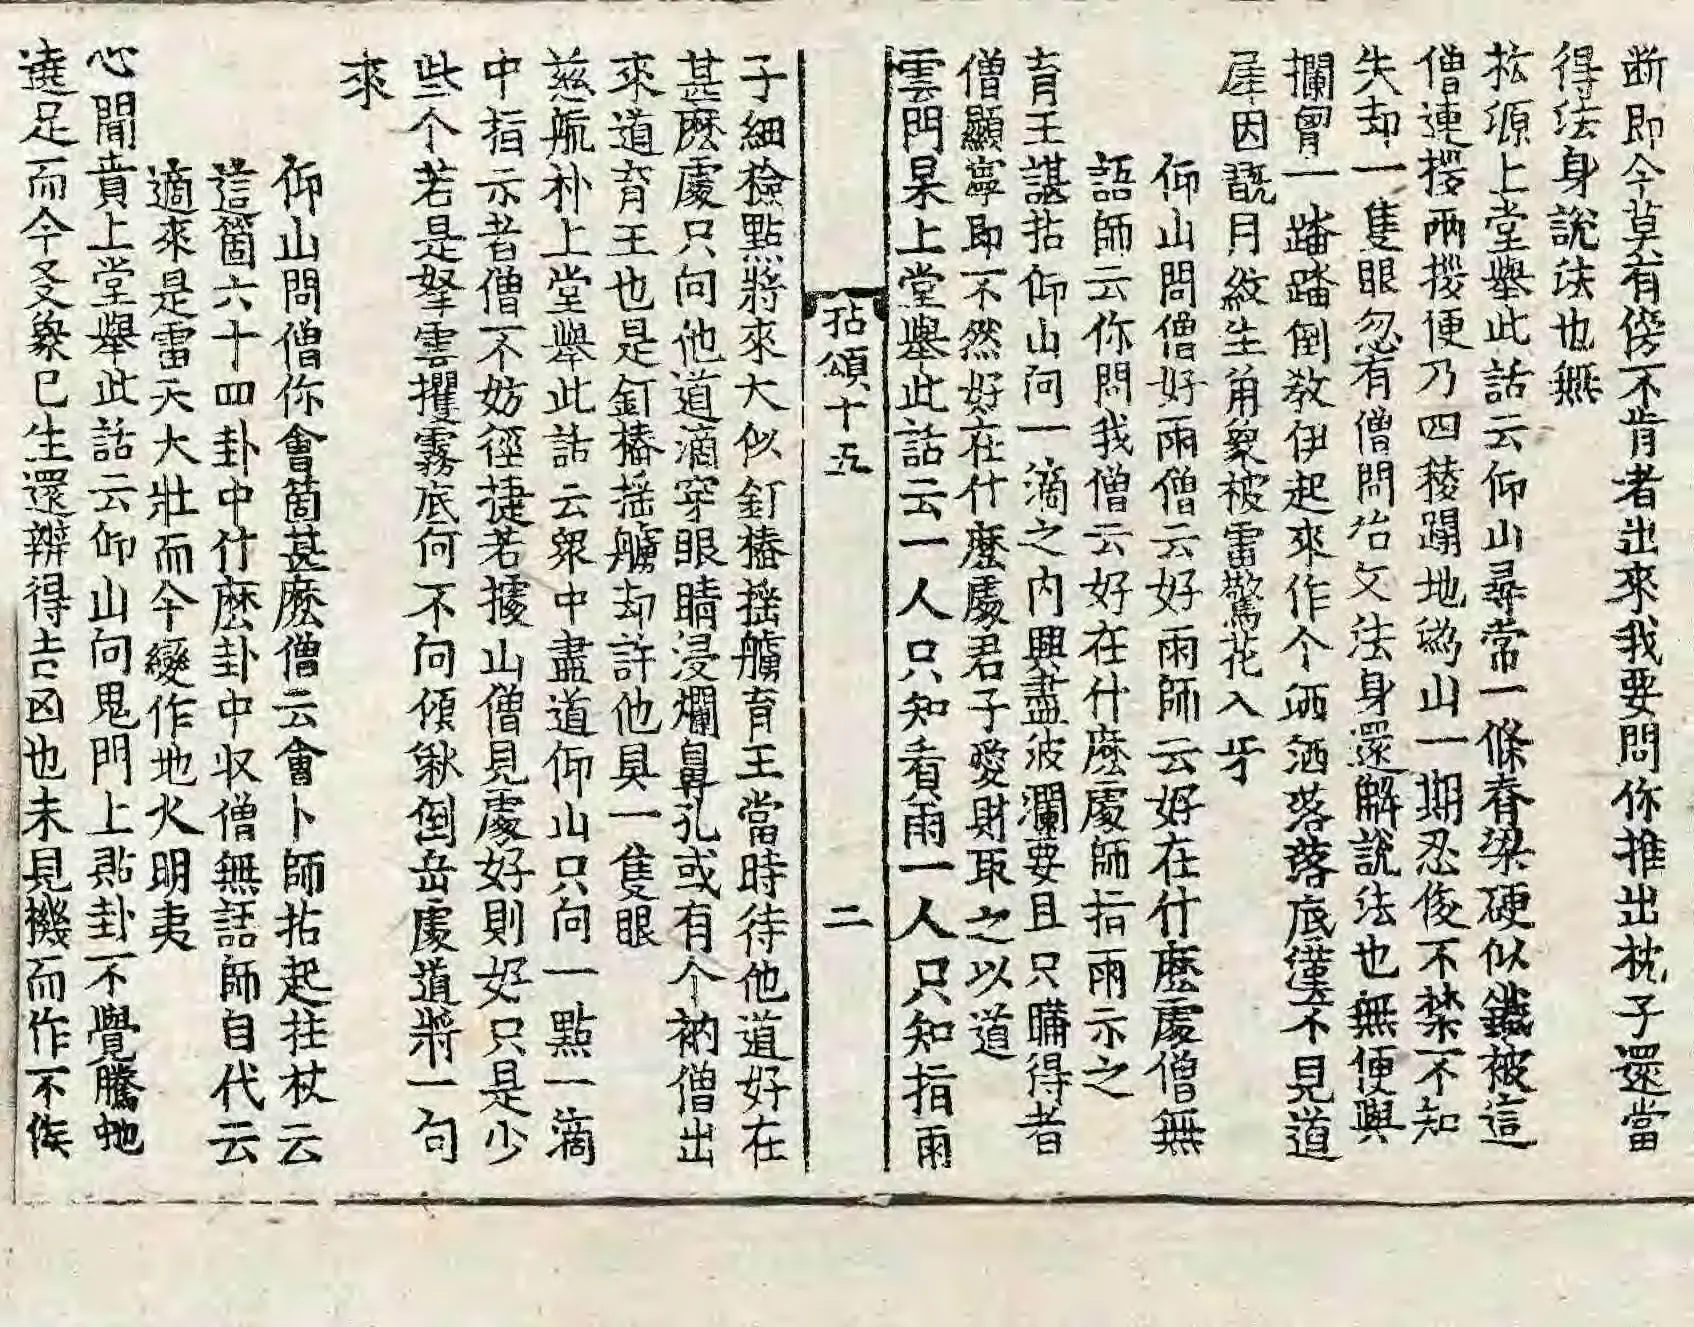 断即今莫有傍不肯者出來我要問你推出枕子還當
得法身說法也無
松源上堂舉此話云仰山尋常一條脊梁硬似鐵被這
僧連拶兩拶便乃四稜蹋地溈山一期忍俊不禁不知
失却一隻眼忽有僧問冶父法身還解說法也無便與
攔胷一踏踏倒教伊起來作个洒洒落落底漢不見道
犀因翫月紋生角象被雷驚花入牙
仰山問僧好雨僧云好雨師云好在什麽處僧無
語師云你問我僧云好在什麽處師指雨示之
育王諶拈仰山向一滴之内興盡波瀾要且只購得者
僧顯寧即不然好在什麽處君子愛財取之以道
雲門杲上堂舉此話云一人只知看雨一人只知指雨
拈頌十五
二
子細檢點將來大似釘樁搖艣育王當時待他道好在
甚麽處只向他道滴穿眼睛浸爛鼻孔或有个衲僧出
來道育王也是釘樁搖艣却許他具一隻眼
慈航朴上堂舉此話云衆中盡道仰山只向一點一滴
中指示者僧不妨徑捷若據山僧見處好則好只是少
些个若是拏雲攫霧底何不向傾湫倒岳處道將一句
來
仰山問僧你會箇甚麽僧云會卜師拈起拄杖云
這箇六十四卦中什麽卦中収僧無語師自代云
適來是雷天大壯而今變作地火明夷
心聞賁上堂舉此話云仰山向鬼門上貼卦不覺騰虵
遶足而今爻象已生還辨得吉凶也未見機而作不俟